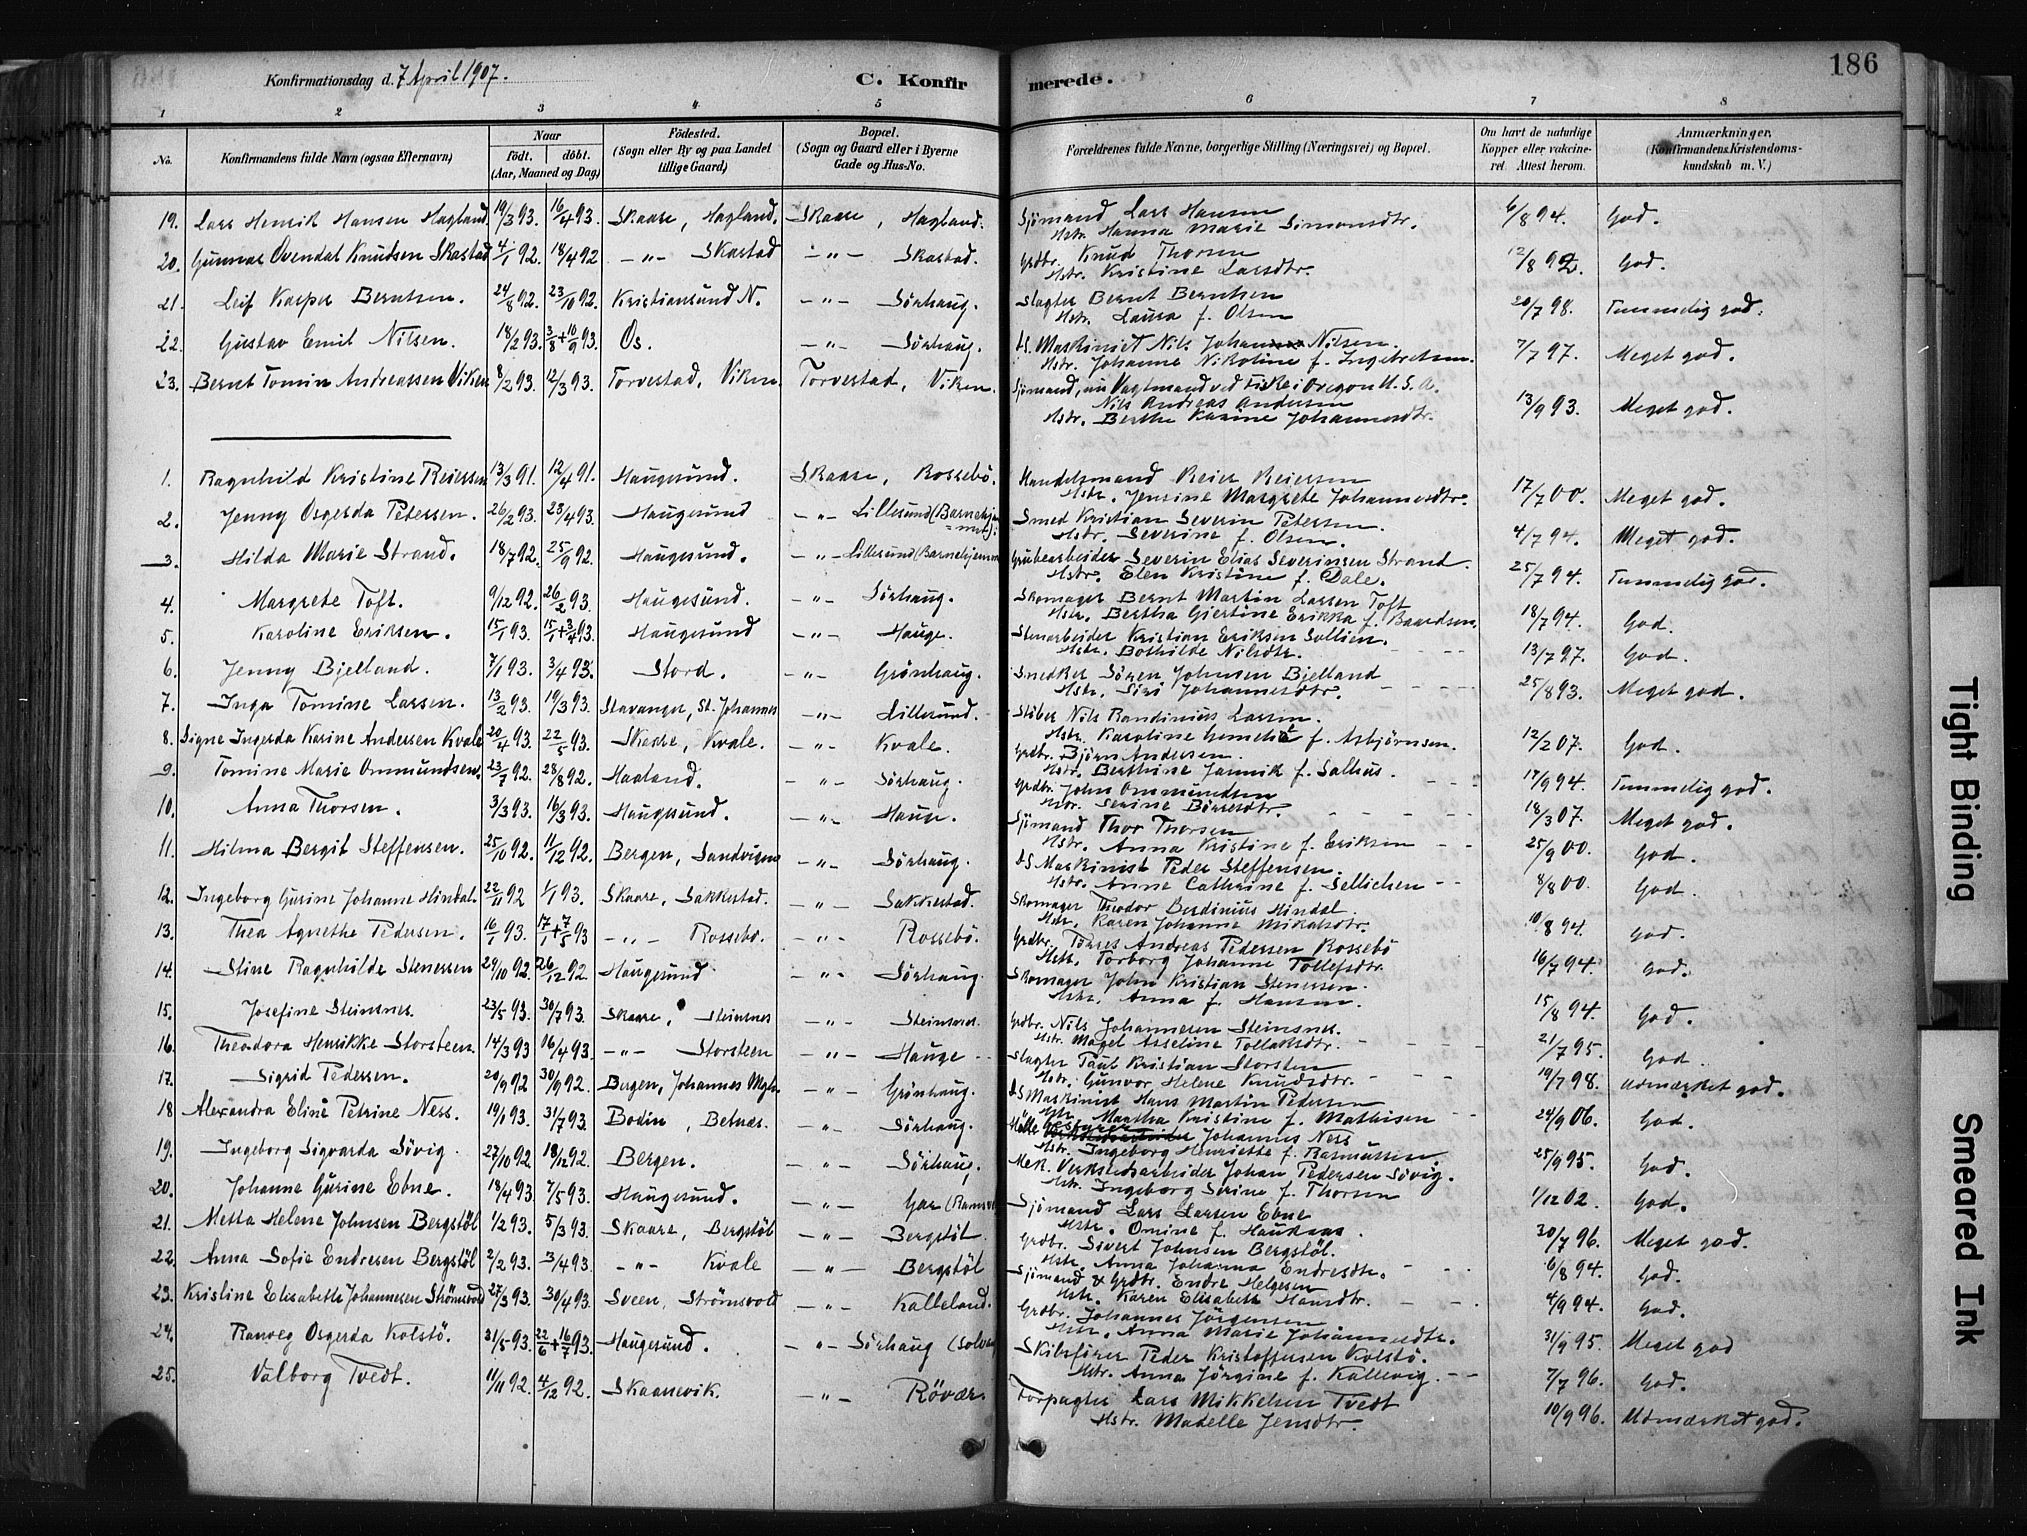 Konfirmationsdag d. 7 April 1907.
C. Konfirmerede.
186
1 2 3 4 5 6 7 8
No. Konfirmandens fulde Navn (ogsaa Efternavn) Naar födt. döbt. (Aar, Maaned og Dag) Födested. (Sogn eller By og paa Landet tillige Gaard) Bopæl. (Sogn og Gaard eller i Byerne Gade og Hus-No. Forældrenes fulde Navne, borgerlige Stilling (Næringsvei) og Bopæl. Om havt de naturlige Kopper eller vakcineret. Attest herom. Anmærkninger. (Konfirmandens Kristendomskundskab m. V.)
19. Lars Henrik Hansen Hagland. 19/3 93. 16/4 93. Skaare, Hagland. Skaare, Hagland. Sjömand Lars Hansen 6/8 94. God.
Hstr. Hanna Marie Simonsdtr.
20. Gunnar Ovendal Knudsen Skastad 4/1 92. 18/4 92 -„- Skastad -„- Skastad. Grdbr. Knud Thorsen 12/8 92. God.
Hstr. Kristine Larsdtr.
21. Leif Kasper Berntsen. 24/8 92. 23/10 92. Kristiansund N. -„- Sörhaug. Slagter Bernt Berntsen 20/7 98. Temmelig god.
Hstr. Laura f. Olsen
22. Gustav Emil Nilsen. 18/2 93. 3/8+10/9 93. Os. -„- Sörhaug. DS. Maskinist Nils Johan Nilsen. 7/7 97. Meget god.
Hstr. Johanne Nikoline f. Ingebretsen.
23. Bernt Tomin Andreassen Viken 8/2 93. 12/3 93. Torvestad, Viken. Torvestad, Viken. Sjömand, nu Vagtmand ved Fiske i Oregon U.S.A.
Nils Andreas Andersen 13/9 93. Meget god.
Hstr. Berthe Karine Johannesdtr.
1. Ragnhild Kristine Reiersen 13/3 91. 12/4 91. Haugesund. Skaare, Rossebö. Handelsmand Reier Reiersen 17/7 00. Meget god.
Hstr. Jensine Margrete Johannesdtr.
2. Jenny Osgerda Petersen. 26/2 93. 23/4 93. Haugesund -„- Lillesund (Barnehjemmet). Smed Kristian Severin Petersen. 4/7 94. Meget god.
Hstr. Severine f. Olsen.
3. Hilda Marie Strand. 18/7 92. 25/9 92. Haugesund. -„- Lillesund (Barnehjemm Grubearbeider Severin Elias Severinsen Strand 25/7 94. Temmelig god.
Hstr. Elen Kristine f. Dale.
4. Margrete Toft. 9/12 92. 26/2 93. Haugesund. -„- Sörhaug. Skomager Bernt Martin Larsen Toft 18/7 94. God.
Hstr. Bertha Gjertine Erikka f. Baardsen.
5. Karoline Eriksen. 15/1 93. 15/1+3/4 93. Haugesund -„- Hauge. Stenarbeider Kristian Eriksen Sollien. 13/7 97. God.
Hstr. Bothilde Nilsdtr.
6. Jenny Bjelland. 7/1 93. 3/4 93. Stord. -„- Grönhaug. Snedker Sören Johnsen Bjelland 25/8 93. Meget god.
Hstr. Siri Johannesdtr.
7. Inga Tomine Larsen. 13/2 93. 19/3 93. Stavanger, St. Johannes -„- Lillesund. Stöber Nils Randinius Larsen. 12/2 07. God.
Hstr. Karoline f. Asbjörnsen.
8. Signe Ingerda Karine Andersen Kvale 20/4 93. 22/5 93. Skaare, Kvale. -„- Kvale. Grdbr. Björn Andersen.
Hstr. Berthine Jannik f. Salhus. 17/9 94. Temmelig god.
9. Tomine Marie Ommundsen. 23/7 92. 28/8 92. Haaland. -„- Sörhaug. Grdbr. John Ommundsen 18/3 07. Meget god.
Hstr. Serine Börresdtr.
10. Anna Thorsen. 3/3 93. 16/3 93. Haugesund. -„- Hauge. Sjömand Thor Thorsen 25/9 00. God.
Hstr. Anna Kristine f. Eriksen
11. Hilma Bergit Steffensen. 25/10 92. 11/12 92. Bergen, Sandvigen -„- Sörhaug. DS Maskinist Peder Steffensen. 8/8 00. God.
Hstr. Anne Cathrine f. Sellichen
12. Ingeborg Gurine Johanne Hindal. 22/11 92 1/1 93. Skaare, Sakkestad. -„- Sakkestad. Skomager Theodor Berdinius Hindal. 10/8 94. God.
Hstr. Karen Johanne Mikalsdtr.
13. Thea Agnethe Pedersen. 16/1 93. 17/1+7/5 93 -„- Rossebö. -„- Rossebö. Grdbr. Torres Andreas Pedersen Rossebö 16/7 94. God.
Hstr. Torborg Johanne Tollefsdtr.
14. Stine Ragnhilde Stenessen 29/10 92. 26/12 92. Haugesund -„- Sörhaug. Skomager John Kristian Stenessen.
Hstr. Anna f. Hansen. 15/8 94. God.
15. Josefine Steinsnes. 23/5 93. 30/7 93. Skaare, Steinsnes -„- Steinsnes. Grdbr. Nils Johannesen Steinsnes. 21/7 95. God.
Hstr. Magel Asseline Tollaksdtr.
16. Theodora Henrikke Storsteen. 14/3 93 16/4 93. -„- Storsteen -„- Hauge Slagter Paul Kristian Storsteen 19/7 98. Udmærket god.
Hstr. Gunvor Helene Knudsdtr.
17. Sigrid Pedersen. 20/9 92 30/9 92. Bergen, Johannes Mgh. -„- Grönhaug. DS Maskinist Hans Martin Pedersen 24/9 06. God.
Hstr. Martha Kristine f. Mathisen
18 Alexandra Eline Petrine Ness. 19/1 93. 31/7 93. Bodin, Betnæs. -„- Sörhaug. Johannes Ness 25/9 95. God.
Hstr. Ingeborg Henriette f. Rasmussen
19. Ingeborg Sigvarda Sövig. 27/10 92. 18/12 92. Bergen. -„- Sörhaug. Mek. Verkstedsarbeider Johan Pedersen Sövig. 1/12 02. God.
Hstr. Ingeborg Serine f. Thorsen
20. Johanne Gurine Ebne. 18/4 93. 7/5 93. Haugesund. -„- Gar Sjömand Lars Larsen Ebne
Hstr. Omine f. Haukaas. 30/7 96. Meget god.
21. Metta Helene Johnsen Bergstöl 1/2 93. 5/3 93. Skaare, Bergstöl -„- Bergstöl. Grdbr. Sivert Johnsen Bergstöl. 6/8 94. God.
Hstr. Anna Johanna Endresdtr.
22. Anna Sofie Endresen Bergstöl 2/2 93. 3/4 93. -„- Kvale -„- Bergstöl Sjömand & Grdbr. Endre Helgesen 4/9 94. God.
Hstr. Karen Elisabeth Hansdtr.
23. Kristine Elisabeth Johannesen Strömsvold 27/3 93. 30/4 93. Sveen, Strömsvold -„- Kalleland. Grdbr. Johannes Jörgensen 31/1 95. Meget god
Hstr. Anna Marie Johannesdtr.
24. Ranveg Osgerda Kolstö. 31/5 93. 22/6+16/7 93. Haugesund. -„- Sörhaug Skibsförer Peder Kristoffersen Kolstö. 7/7 96. God.
Hstr. Anna Jörgine f. Kallevig.
25. Valborg Tvedt. 11/11 92. 4/12 92. Skaanevik. -„- Rövær. Forpagter Lars Mikkelsen Tvedt 10/9 96. Udmærket god.
Hstr. Madelle Jensdtr.
Tight Binding
Smeared Ink